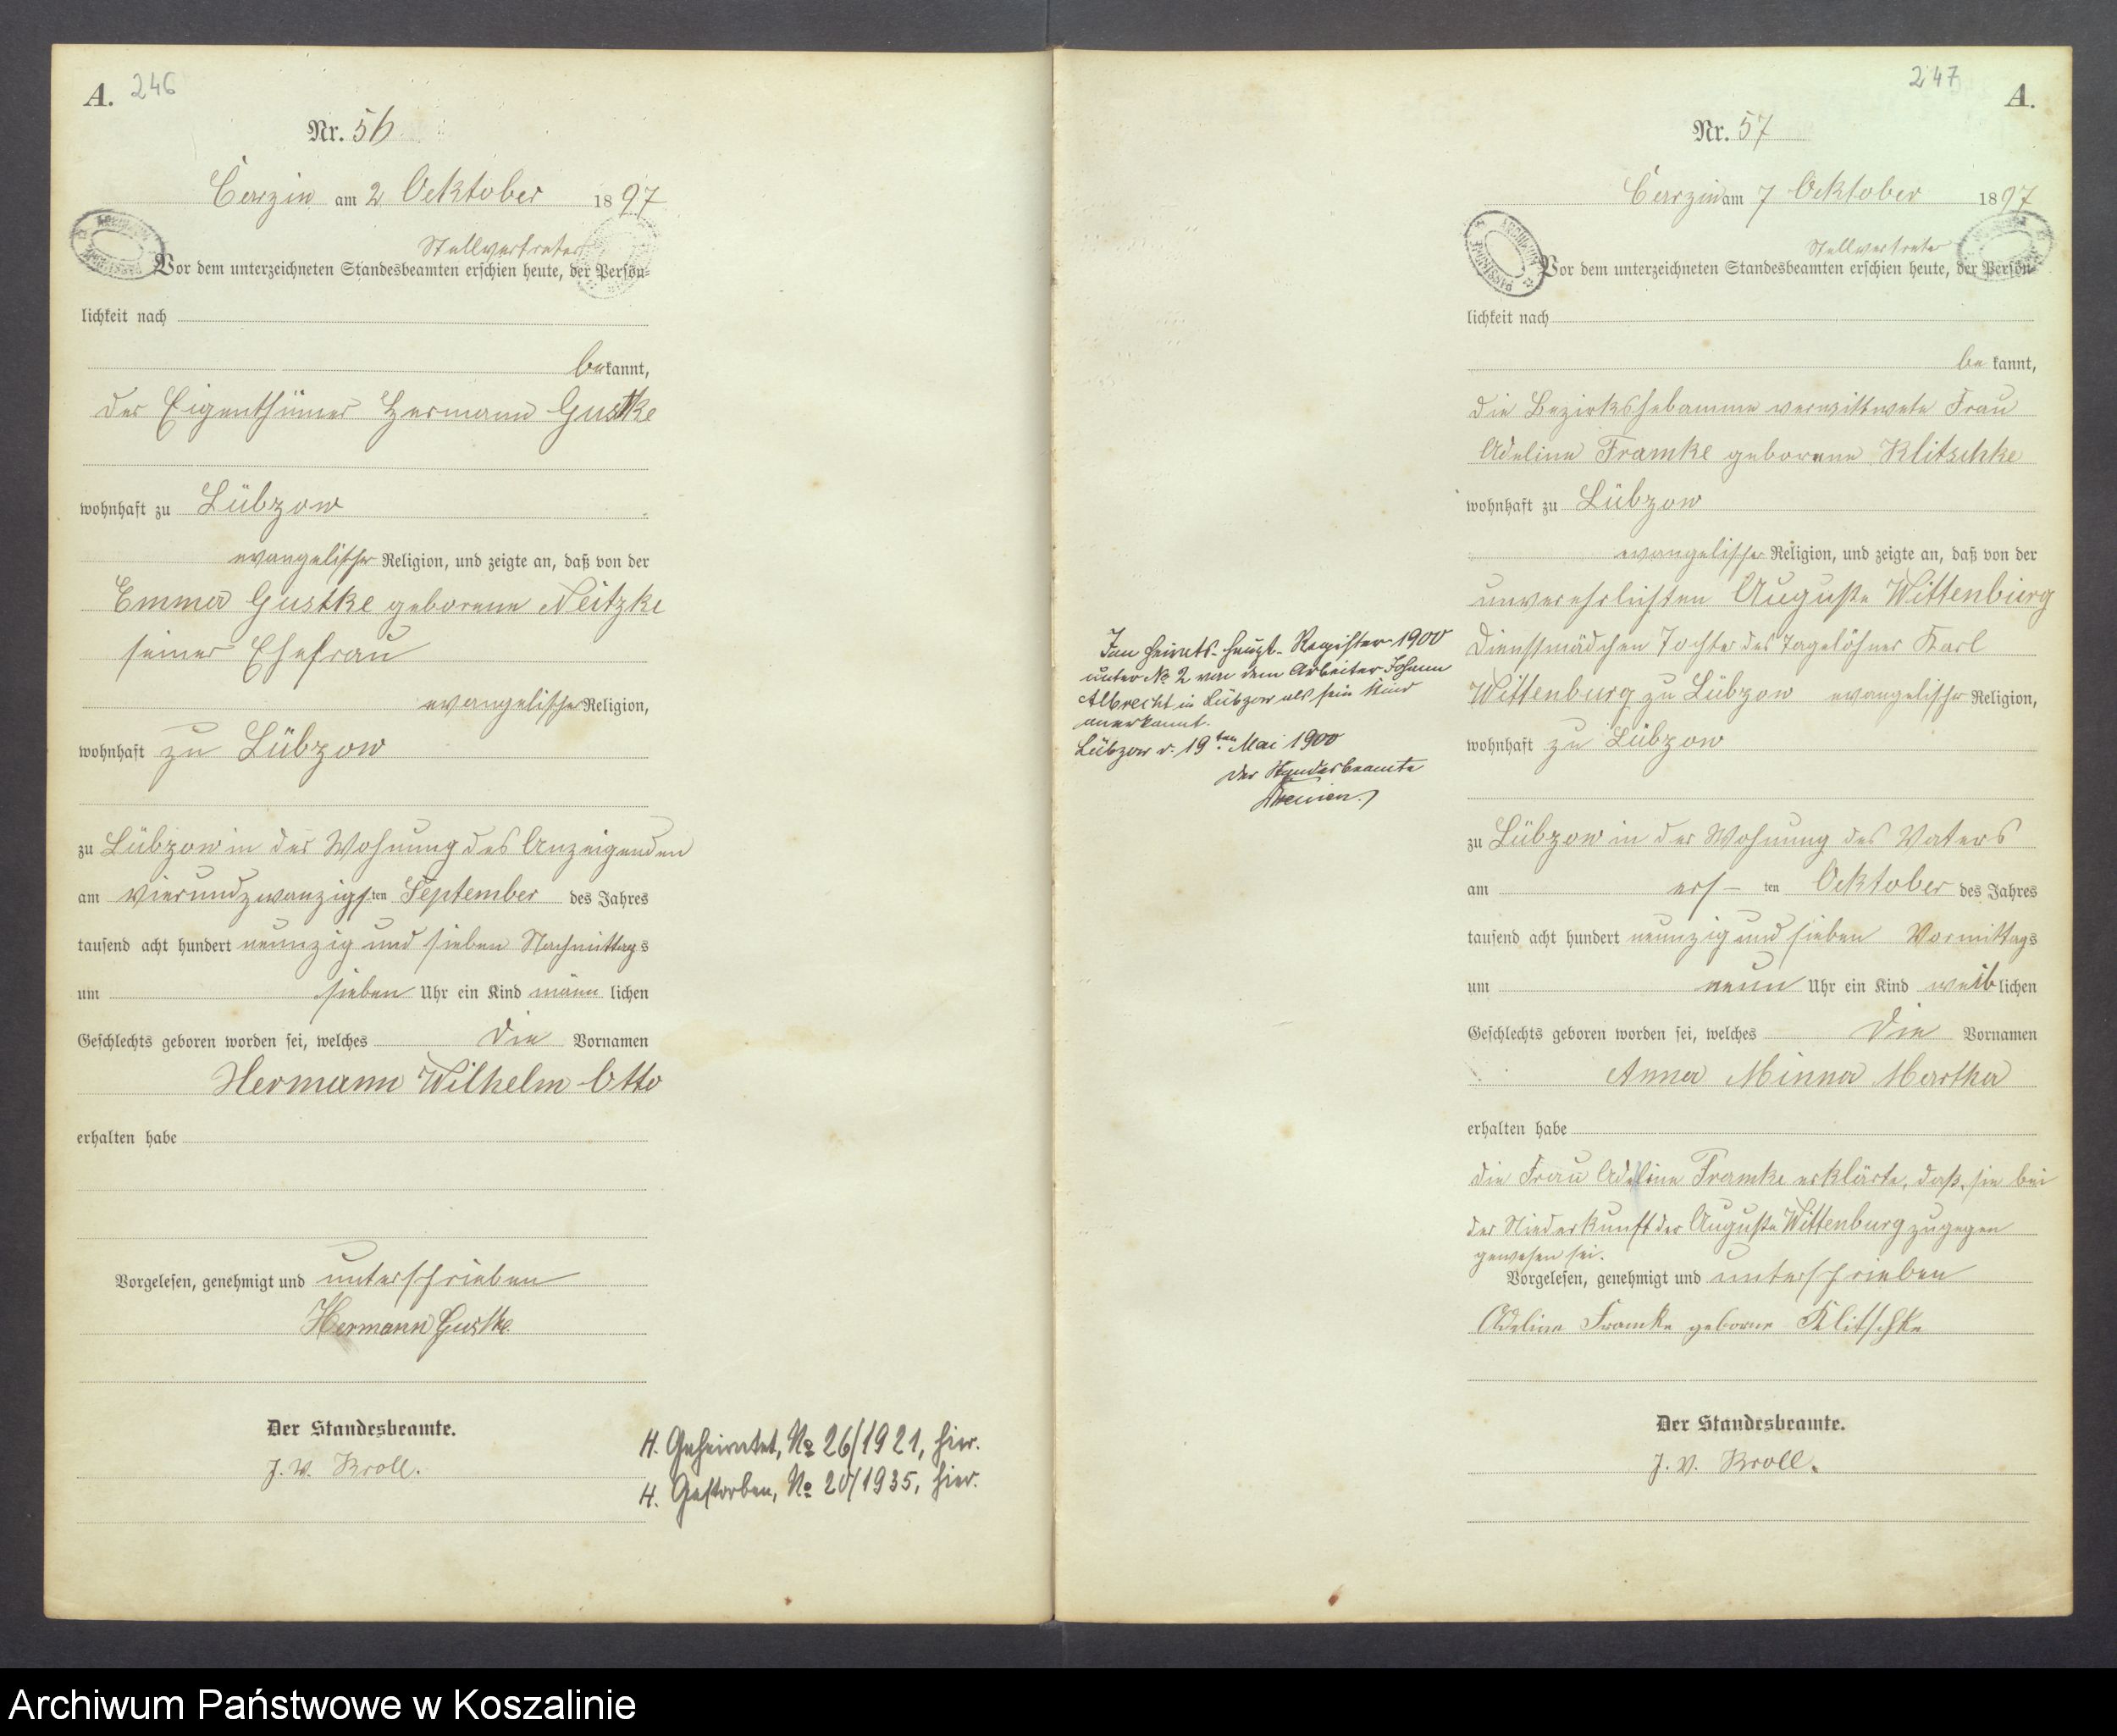 A. 246
Nr. 56
Carzin am 2 Oektober 1897
Stellvertreter
Vor dem unterzeichneten Standesbeamten erschien heute, der Persön-
lichkeit nach
bekannt,
der Eigenthümer Hermann Gustke
wohnhaft zu Lübzow
evangelischer Religion, und zeigte an, daß von der
Emma Gustke geborene Neitzke
seiner Ehefrau
evangelischer Religion,
wohnhaft zu Lübzow
zu Lübzow in der Wohnung des Anzeigenden
am vierundzwanzigsten September des Jahres
tausend acht hundert neunzig und sieben Nachmittags
um sieben Uhr ein Kind männlichen
Geschlechts geboren worden sei, welches die Vornamen
Hermann Wilhelm Otto
erhalten habe
Vorgelesen, genehmigt und unterschrieben
Hermann Gustke
Der Standesbeamte.
J. V. Kroll.
H. Geheiratet, No 26/1921, hier.
H. Gestorben, No 20/1935, hier.
247 A.
Nr. 57
Carzin am 7 Oektober 1897
Stellvertreter
Vor dem unterzeichneten Standesbeamten erschien heute, der Persön-
lichkeit nach
bekannt,
die Bezirkshebamme verwittwete Frau
Adeline Framke geborene Klitschke
wohnhaft zu Lübzow
evangelischer Religion, und zeigte an, daß von der
unverehelichten Auguste Wittenburg
Dienstmädchen Tochter des Tagelöhner Karl
Wittenburg zu Lübzow evangelischer Religion,
wohnhaft zu Lübzow
zu Lübzow in der Wohnung des Vaters
am ers-ten Oektober des Jahres
tausend acht hundert neunzig und sieben Vormittags
um neun Uhr ein Kind weiblichen
Geschlechts geboren worden sei, welches die Vornamen
Anna Minna Martha
erhalten habe
die Frau Adeline Framke erklärte, daß sie bei
der Niederkunft der Auguste Wittenburg zugegen
gewesen sei.
Vorgelesen, genehmigt und unterschrieben
Adeline Framke geborne Klitschke
Der Standesbeamte.
J. V. Kroll.
Heirats-Haupt-Register 1900
unter No 2 von dem Arbeiter Johann
Albrecht in Lübzow als sein Kind
anerkannt.
Lübzow d. 19ten Mai 1900
Der Standesbeamte
Archiwum Państwowe w Koszalinie